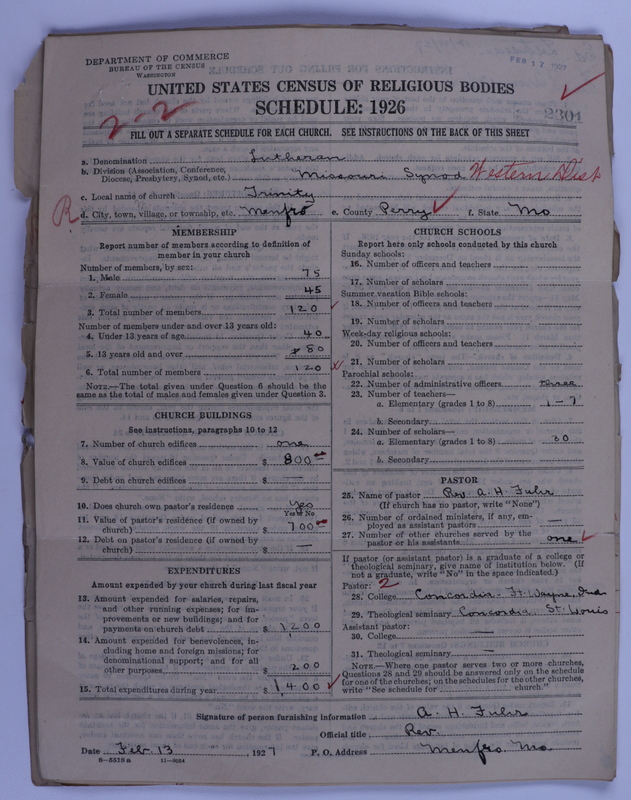 DEPARTMENT OF COMMERCE
BUREAU OF THE CENSUS
WASHINGTON
FEB 17 1927
UNITED STATES CENSUS OF RELIGIOUS BODIES
SCHEDULE: 1926
2301
2-2
FILL OUT A SEPARATE SCHEDULE FOR EACH CHURCH. SEE INSTRUCTIONS ON THE BACK OF THIS SHEET
a. Denomination Lutheran
b. Division (Association, Conference, Diocese, Presbytery, Synod, etc.) Missouri Synod Western Dist
c. Local name of church Trinity
R d. City, town, village, or township, etc. Menfro e. County Perry f. State Mo
MEMBERSHIP
Report number of members according to definition of
member in your church
Number of members, by sex:
1. Male 75
2. Female 45
3. Total number of members 120
Number of members under and over 13 years old:
4. Under 13 years of age 40
5. 13 years old and over 80
6. Total number of members 120
NOTE.—The total given under Question 6 should be the
same as the total of males and females given under Question 3.
CHURCH BUILDINGS
See instructions, paragraphs 10 to 12
7. Number of church edifices one
8. Value of church edifices $ 800
9. Debt on church edifices $ —
10. Does church own pastor's residence Yes
Yes or No
11. Value of pastor's residence (if owned by
church) $ 700
12. Debt on pastor's residence (if owned by
church) $ —
EXPENDITURES
Amount expended by your church during last fiscal year
13. Amount expended for salaries, repairs,
and other running expenses; for im-
provements or new buildings; and for
payments on church debt $ 1200
14. Amount expended for benevolences, in-
cluding home and foreign missions; for
denominational support; and for all
other purposes $ 200
15. Total expenditures during year $ 1400
CHURCH SCHOOLS
Report here only schools conducted by this church
Sunday schools:
16. Number of officers and teachers
17. Number of scholars
Summer vacation Bible schools:
18. Number of officers and teachers
19. Number of scholars
Week-day religious schools:
20. Number of officers and teachers
21. Number of scholars
Parochial schools:
22. Number of administrative officers three
23. Number of teachers—
a. Elementary (grades 1 to 8) 1-7
b. Secondary
24. Number of scholars—
a. Elementary (grades 1 to 8) 20
b. Secondary
PASTOR
25. Name of pastor Rev. A. H. Fuhr
(If church has no pastor, write "None")
26. Number of ordained ministers, if any, em-
ployed as assistant pastors —
27. Number of other churches served by the
pastor or his assistants one
If pastor (or assistant pastor) is a graduate of a college or
theological seminary, give name of institution below. (If
not a graduate, write "No" in the space indicated.)
Pastor: 2
28. College Concordia - Ft. Wayne, Ind
29. Theological seminary Concordia St. Louis
Assistant pastor:
30. College —
31. Theological seminary —
NOTE.—Where one pastor serves two or more churches,
Questions 28 and 29 should be answered only on the schedule
for one of the churches; on the schedules for the other churches,
write "See schedule for church."
Signature of person furnishing information A. H. Fuhr
Official title Rev.
Date Feb. 13, 1927 P. O. Address Menfro Mo.
8-5578 a 11-9064